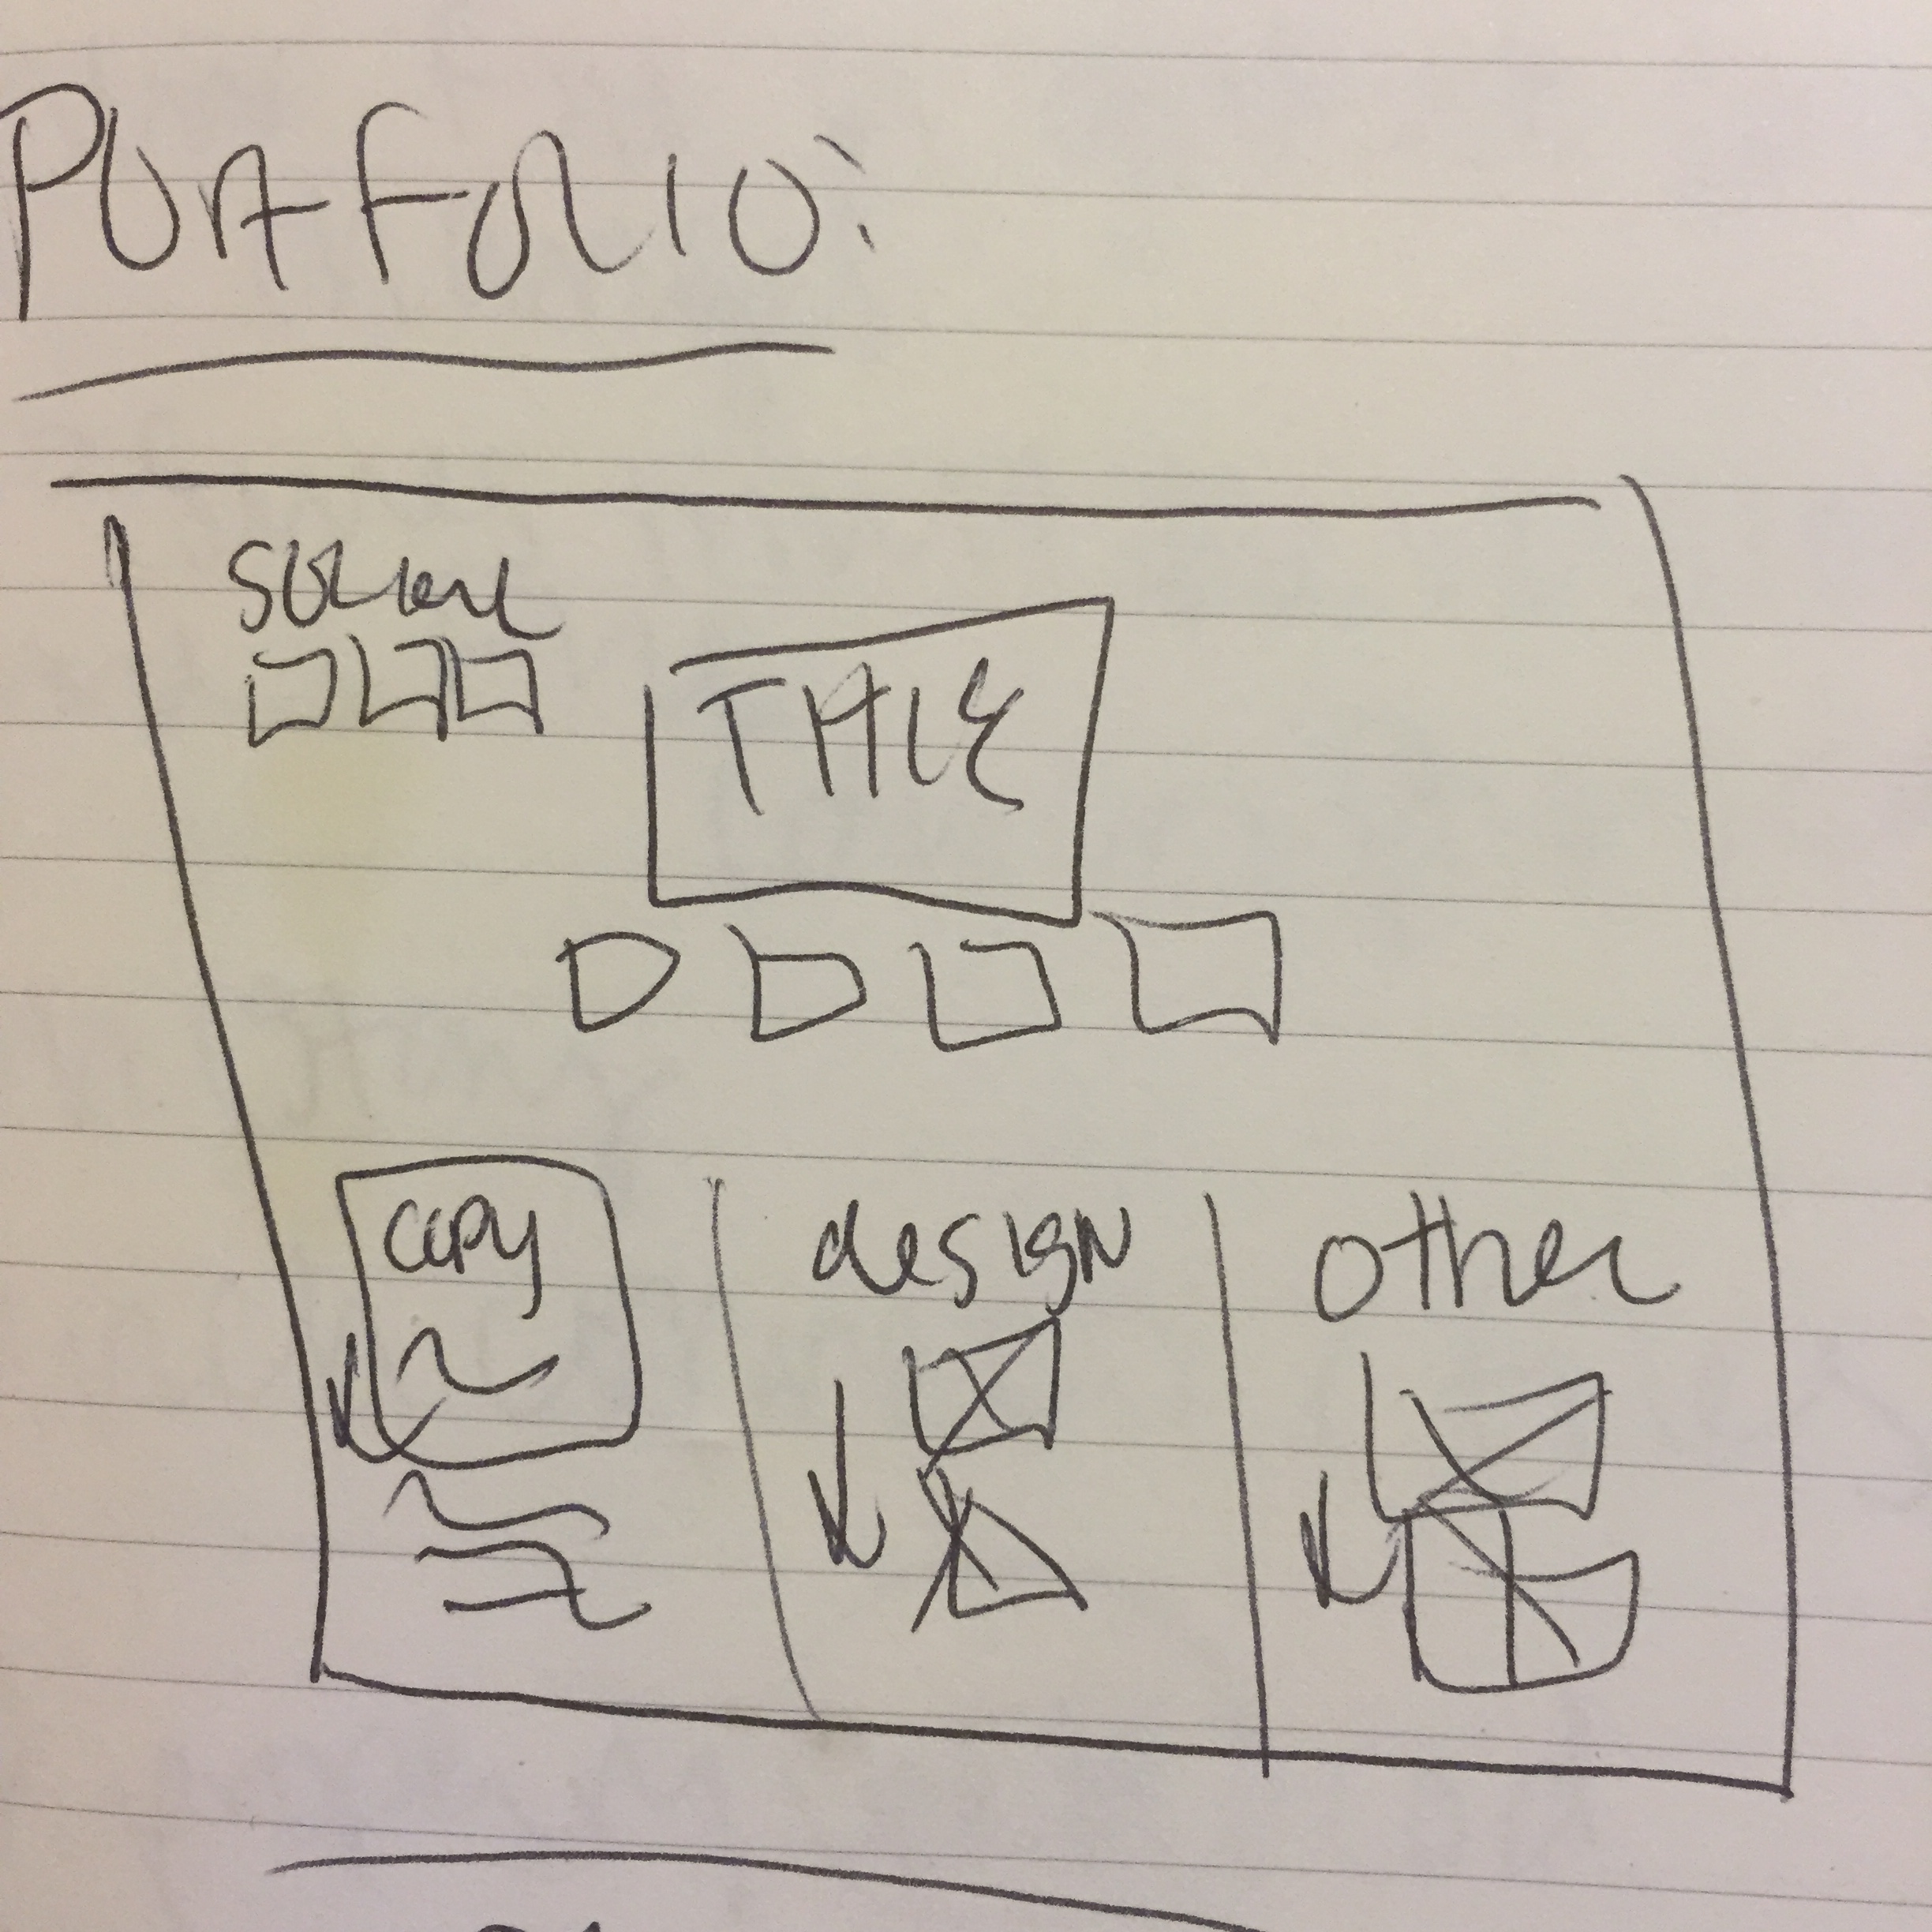 Portfolio:
TITLE
copy
design
other